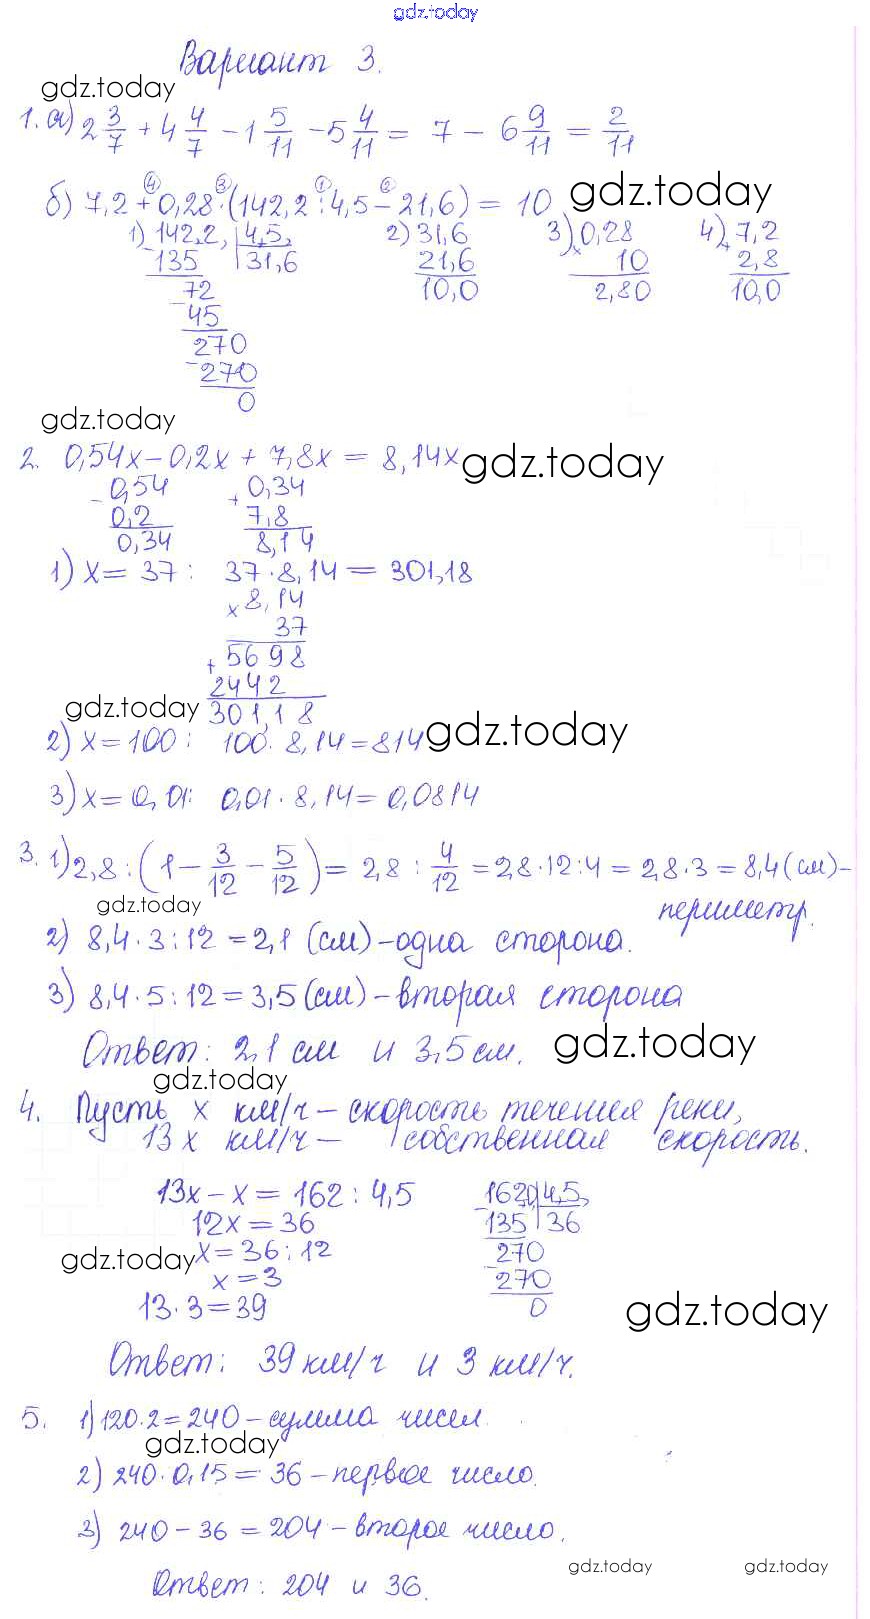 gdz.today
Вариант 3.
gdz.today
1. а) 2 3/7 + 4 4/7 − 1 5/11 − 5 4/11 = 7 − 6 9/11 = 2/11
б) 7,2 + 0,28 · (142,2 : 4,5 − 21,6) = 10 gdz.today
④ ③ ① ②
1) 142,2, | 4,5, 2) 31,6 3) 0,28 4) 7,2
− 135 | 31,6 21,6 × 10 + 2,8
72 10,0 2,80 10,0
− 45
270
− 270
0
gdz.today
2. 0,54x − 0,2x + 7,8x = 8,14x gdz.today
− 0,54 + 0,34
0,2 7,8
0,34 8,14
1) x = 37 : 37 · 8,14 = 301,18
× 8,14
37
+ 5698
2442
gdz.today 301,18
2) x = 100 : 100 · 8,14 = 814 gdz.today
3) x = 0,01 : 0,01 · 8,14 = 0,0814
3. 1) 2,8 : (1 − 3/12 − 5/12) = 2,8 : 4/12 = 2,8 · 12 : 4 = 2,8 · 3 = 8,4 (см) –
gdz.today периметр.
2) 8,4 · 3 : 12 = 2,1 (см) – одна сторона.
3) 8,4 · 5 : 12 = 3,5 (см) – вторая сторона
Ответ: 2,1 см и 3,5 см. gdz.today
gdz.today
4. Пусть x км/ч – скорость течения реки,
13x км/ч – собственная скорость.
13x − x = 162 : 4,5 162,0, | 4,5,
12x = 36 − 135 | 36
gdz.today x = 36 : 12 270
x = 3 − 270
13 · 3 = 39 0
gdz.today
Ответ: 39 км/ч и 3 км/ч.
5. 1) 120 · 2 = 240 – сумма чисел.
gdz.today
2) 240 · 0,15 = 36 – первое число.
3) 240 − 36 = 204 – второе число.
gdz.today gdz.today
Ответ: 204 и 36.